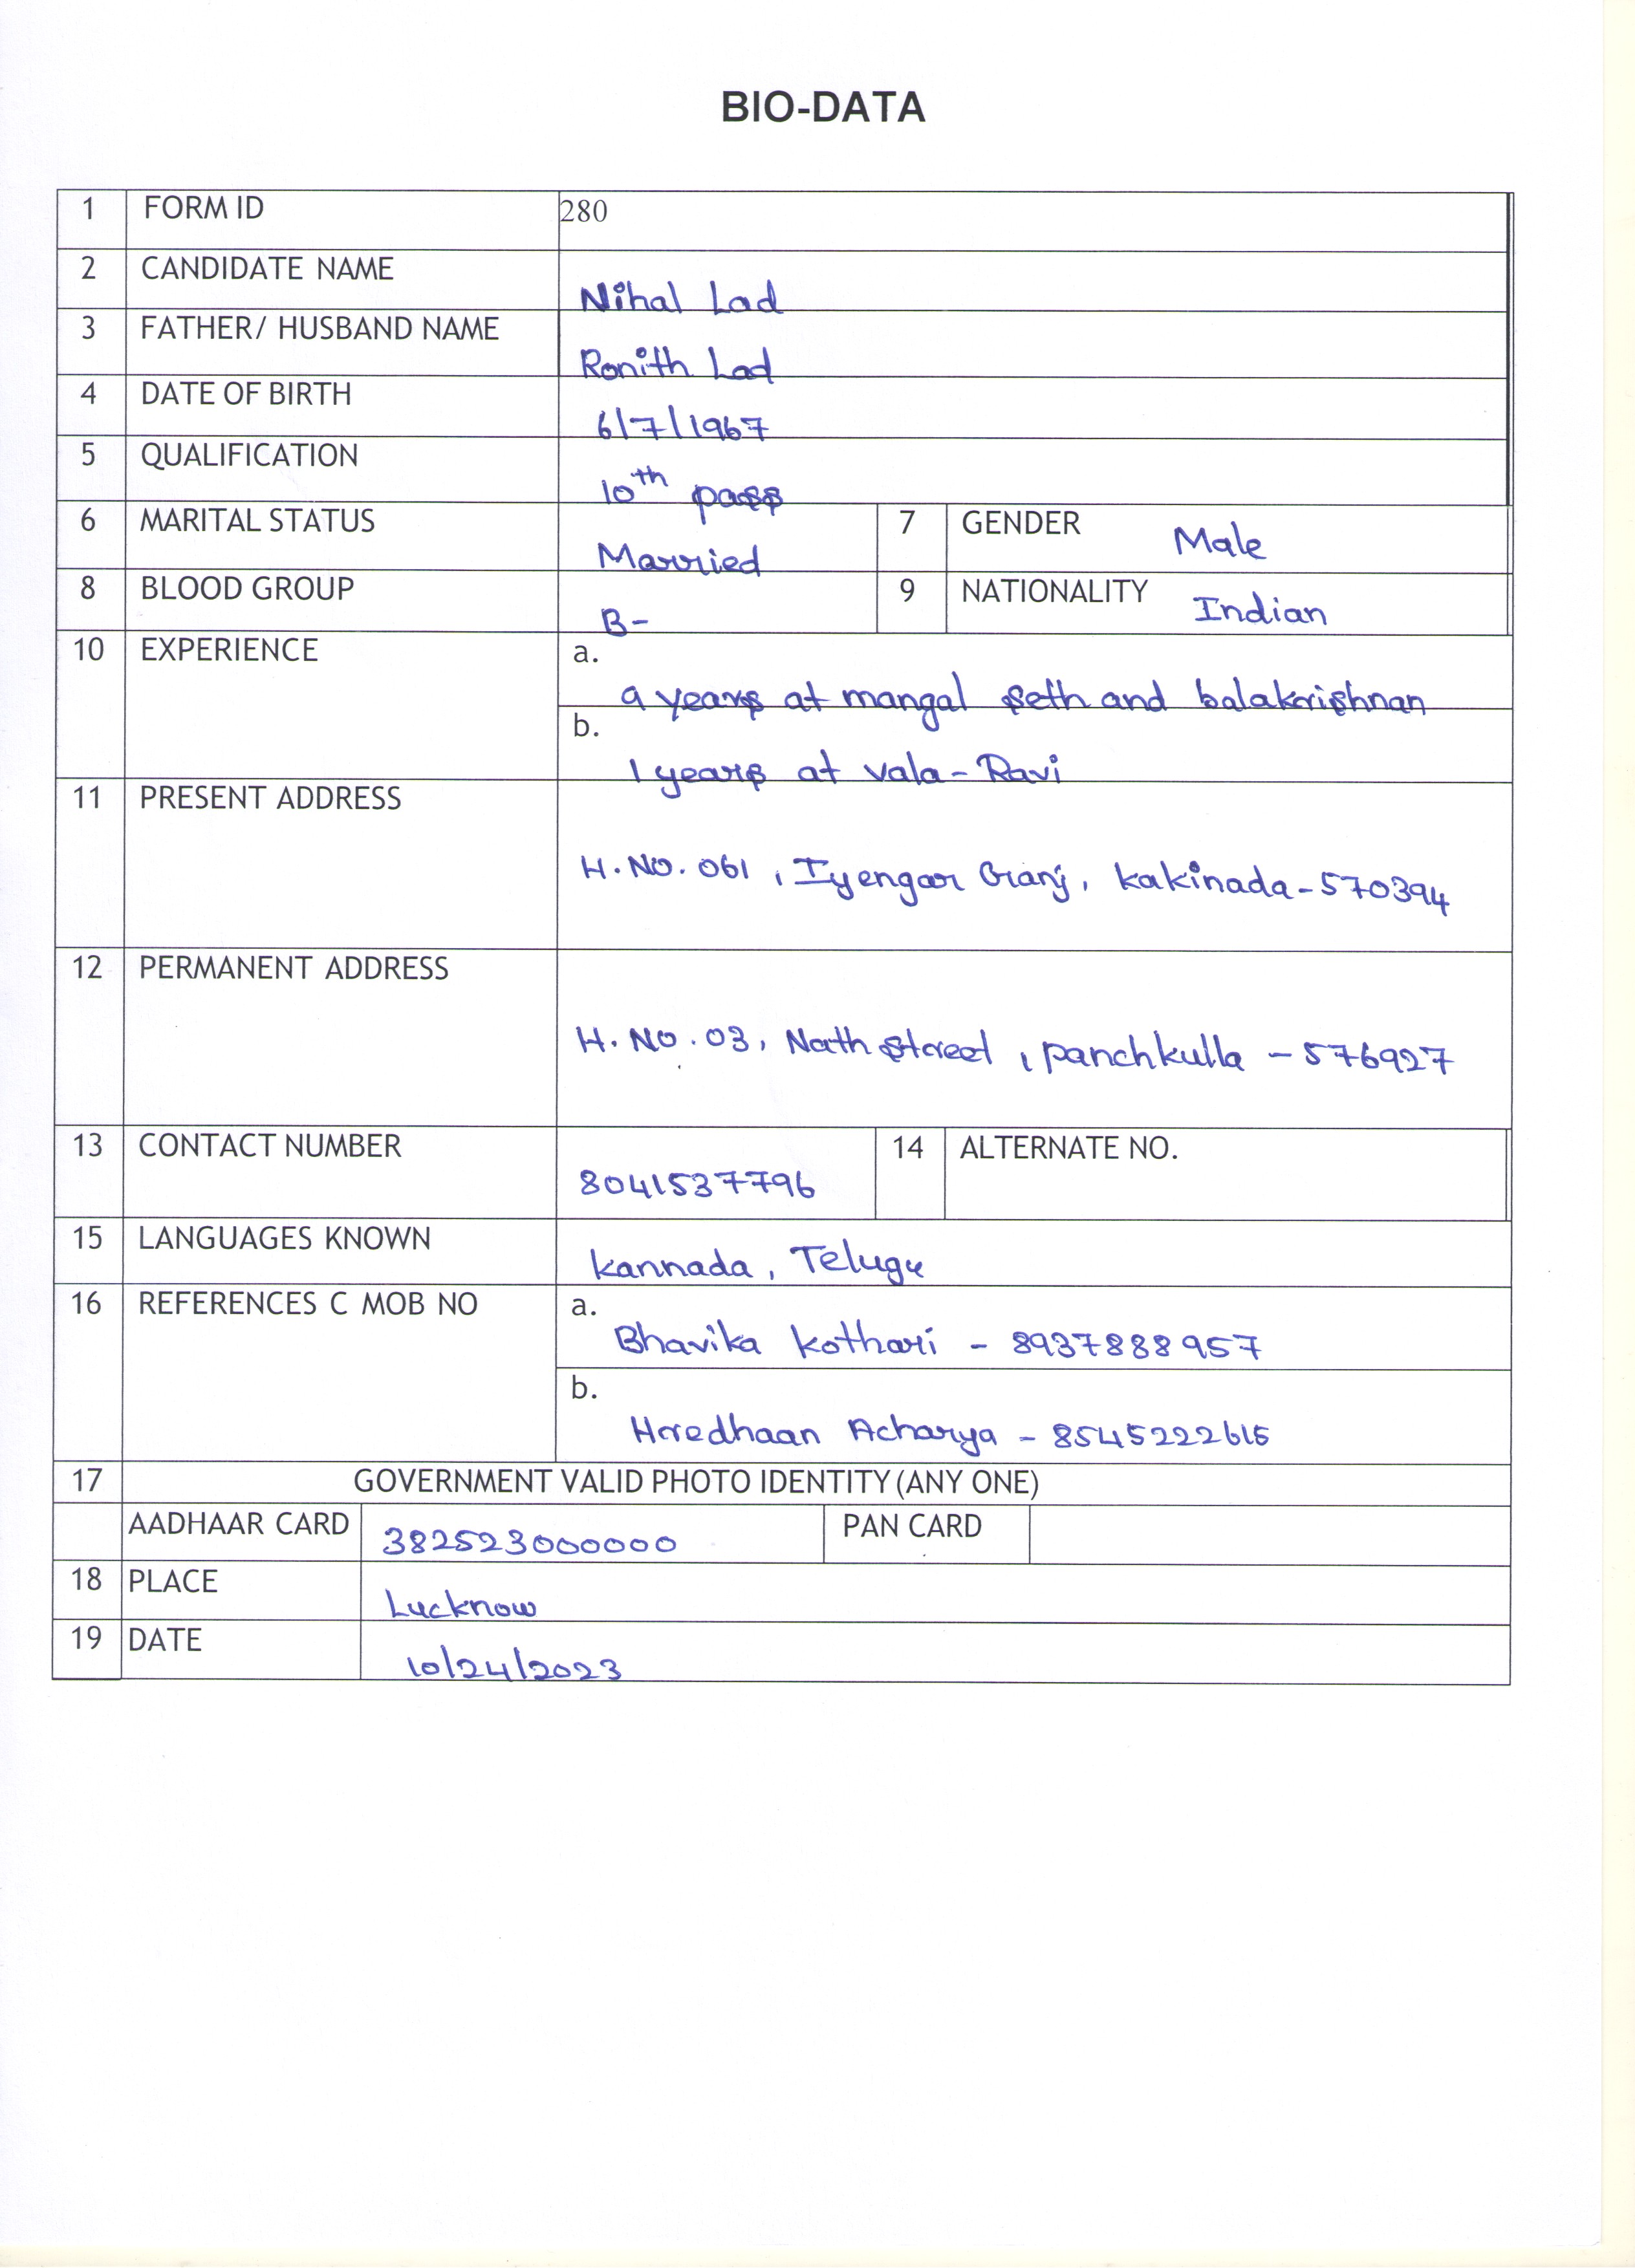 BIO-DATA
1 FORM ID 280
2 CANDIDATE NAME Nihal Lad
3 FATHER/ HUSBAND NAME Ronith Lad
4 DATE OF BIRTH 6/7/1967
5 QUALIFICATION 10th pass
6 MARITAL STATUS Married 7 GENDER Male
8 BLOOD GROUP B- 9 NATIONALITY Indian
10 EXPERIENCE a. 9 years at mangal seth and balakrishnan
b. 1 years at vala-Ravi
11 PRESENT ADDRESS H.NO. 061, Iyengar Ganj, kakinada-570394
12 PERMANENT ADDRESS H.NO.03, Nath street, panchkulla - 576927
13 CONTACT NUMBER 8041537796 14 ALTERNATE NO.
15 LANGUAGES KNOWN kannada, Telugu
16 REFERENCES C MOB NO a. Bhavika kothari - 8937888957
b. Hredhaan Acharya - 8545222615
17 GOVERNMENT VALID PHOTO IDENTITY (ANY ONE)
AADHAAR CARD 382523000000 PAN CARD
18 PLACE Lucknow
19 DATE 10/24/2023